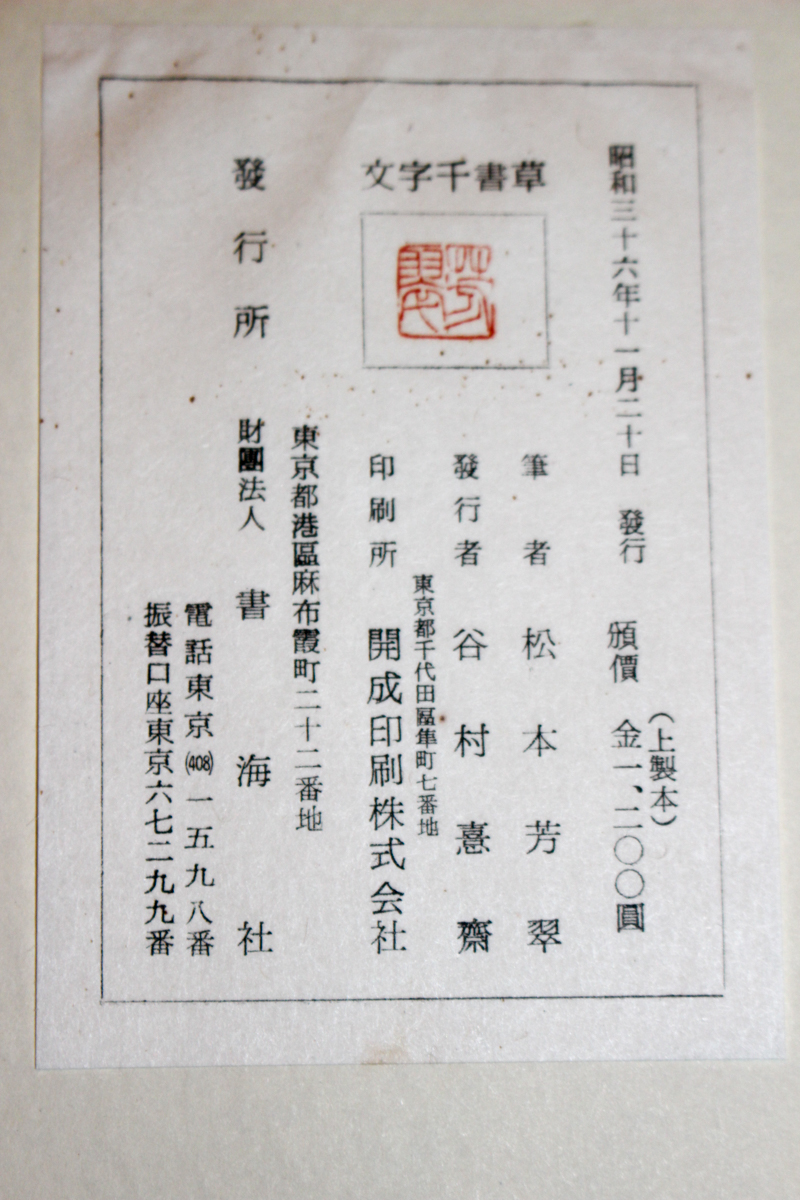 昭和三十六年十一月二十日 發行 頒價 金一、二〇〇圓
(上製本)
草書千字文
筆者 松本芳翠
發行者 谷村憙齋
東京都千代田區隼町七番地
印刷所 開成印刷株式会社
東京都港區麻布霞町二十二番地
發行所 財團法人 書海社
電話東京(408)一五九八番
振替口座東京六七二九九番